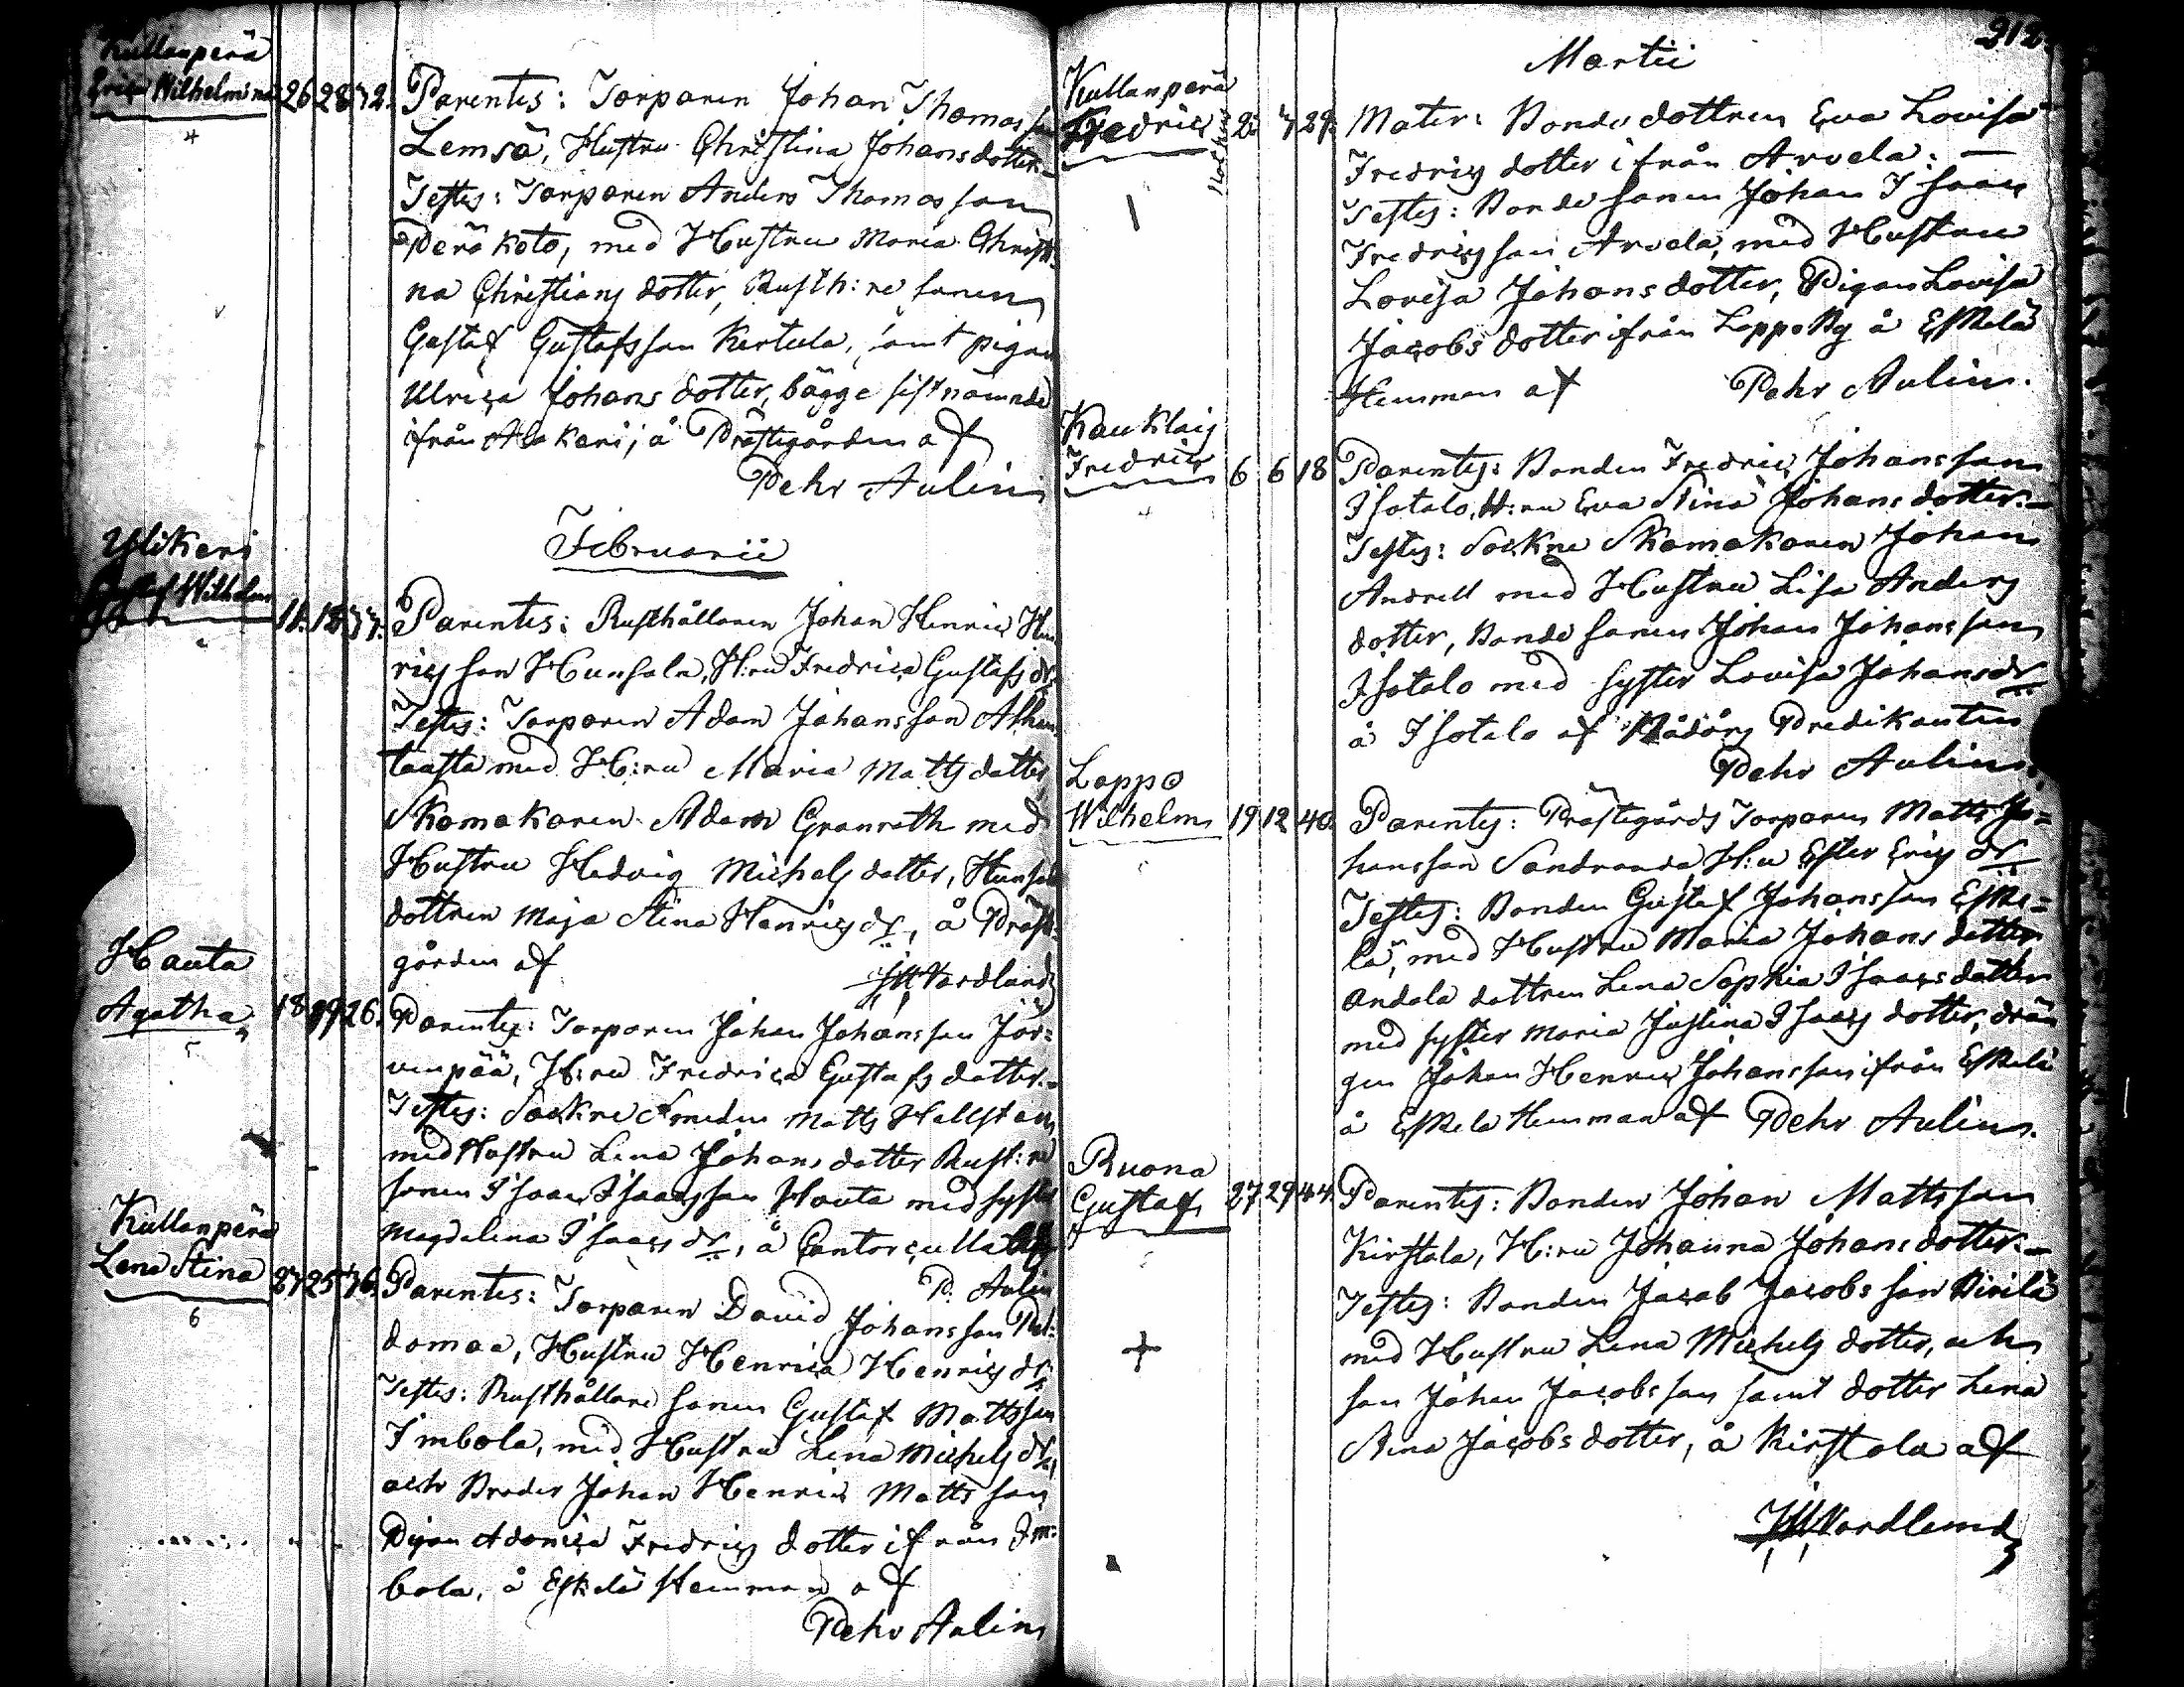 Kullanperä
Erica Wilhelmina 26 28 32. Parentes: Torparen Johan Thomas son
4
Lemsä, Hustru Christina Johansdotter
Testes: Torparen Anders Thomasson
Peräketo, med Hustru Maria Christi-
na Christians dotter, Rusth:re sonen
Gustaf Gustafsson Kertula, samt pigan
Ulrica Johansdotter, bägge sistnämnde
ifrån Alakeri; å Prästegården af
Pehr Aulin
Februarii
Ylikeri
Gustaf Wilhelm 11. 18 37. Parentes: Rusthållaren Johan Henric Hen
rics son Hunsala, H:ru Fredrica Gustafs dr
Testes: Torparen Adam Johansson Ahan
tausta med H:ru Maria Matts dotter,
Skomakaren Adam Granroth med
Hustru Hedvig Michels dotter, Hunsala
dottren Maja Stina Henrics dr, å Präst-
gården af
Nordlund
Hauta
Agatha 18 19 26. Parentes: Torparen Johan Johansson Jär-
5
venpää, H:ru Fredrica Gustafs dotter.-
Testes: Sockne Smeden Matts Hellsten
med Hustru Lena Johans dotter Rust:re
sonen Isaac Isaacsson Hauta med syster
Magdalena Isaacs dr, å Cantors
P. Aulin
Kullanperä
Lena Stina 27 25 36. Parentes: Torparen David Johansson Pel-
6
domaa, Hustru Henrica Henrics dr
Testes: Rusthållare sonen Gustaf Mattsson
Imbola, med Hustru Lena Michels dr,
och Broder Johan Henric Matts son
Pigan Adamia Fredrics dotter ifrån Im-
bola, å Eskelä Hemman af
Pehr Aulin
212.
Martii
Kullanperä
Fredric 2. 4 29. Mater: Bonde dottren Eva Lovisa
Fredrics dotter ifrån Arvela: —
Testes: Bonde sonen Johan Isaac
Fredricsson Arvela, med Hustru
Lovisa Johansdotter, Pigan Lovisa
Jacobs dotter ifrån Loppo By å Eskelä
Hemman af Pehr Aulin.
Kauklais
Fredric 6 6 18 Parentes: Bonden Fredric Johansson
Isotalo, H:ru Eva Stina Johansdotter.-
Testes: Sockne Skomakaren Johan
Andrell med Hustru Lisa Anders
dotter, Bonde sonen Johan Johansson
Isotalo med syster Lovisa Johansdr
å Isotalo af Nådårs Predikanten
Pehr Aulin.
Loppo
Wilhelm 19 12 40. Parentes: Prästegårds Torparen Matts Jo-
hansson Sandranda, H:u Ester Erics dr
Testes: Bonden Gustaf Johansson Eske-
lä, med Hustru Maria Johans dotter
Andala dottren Lena Sophia Isaacs dotter
med syster Maria Justina Isaacs dotter, drän
gen Johan Henric Johansson ifrån Eskelä
å Eskelä Hemman af Pehr Aulin.
Ruona
Gustaf 27. 29 44. Parentes: Bonden Johan Mattsson
Kirstala, H:ru Johanna Johansdotter.-
Testes: Bonden Jacob Jacobs son Birilä
med Hustru Lena Michels dotter, och
son Johan Jacobsson samt dotter Lena
Stina Jacobs dotter, å Kirstala af
Nordlund